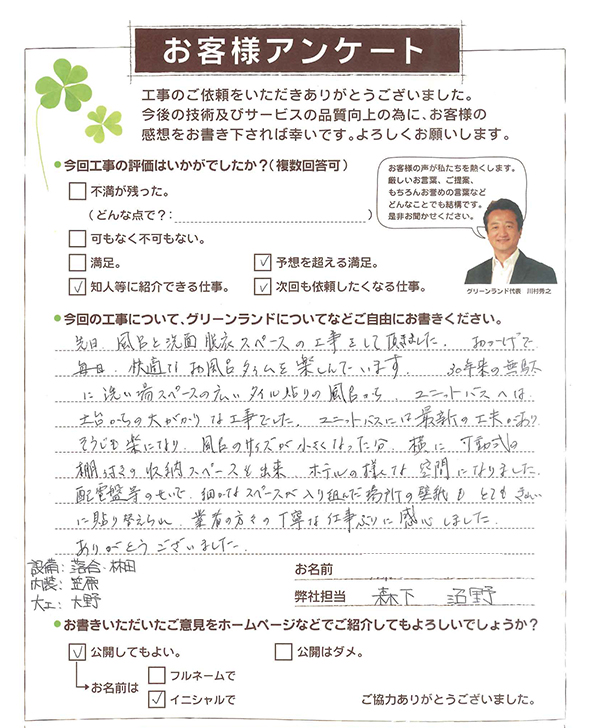 お客様アンケート
工事のご依頼をいただきありがとうございました。
今後の技術及びサービスの品質向上の為に、お客様の
感想をお書き下されば幸いです。よろしくお願いします。
●今回工事の評価はいかがでしたか?(複数回答可)
□不満が残った。
(どんな点で?: )
□可もなく不可もない。
□満足。 ☑予想を超える満足。
☑知人等に紹介できる仕事。 ☑次回も依頼したくなる仕事。
お客様の声が私たちを熱くします。
厳しいお言葉、ご提案、
もちろんお誉めの言葉など
どんなことでも結構です。
是非お聞かせください。
グリーンランド代表 川村秀之
●今回の工事について、グリーンランドについてなどご自由にお書きください。
先日、風呂と洗面脱衣スペースの工事をして頂きました。おかげで
毎日、快適なお風呂タイムを楽しんでいます。 30年来の無駄
に洗い場スペースの広いタイル貼りの風呂から、ユニットバスへは
土台からの大がかりな工事でした。ユニットバスには最新の工夫があり
そうじも楽になり、風呂のサイズが小さくなった分、横に可動式の
棚付きの収納スペースも出来、ホテルの様な空間になりました。
配電盤等のせいで、細かなスペースが入り組んだ場所の壁紙もとてもきれい
に貼り替えられ、業者の方々の丁寧な仕事ぶりに感心しました。
ありがとうございました。
設備:落合・林田
内装:笠原
大工:大野
お名前
弊社担当 森下 沼野
●お書きいただいたご意見をホームページなどでご紹介してもよろしいでしょうか?
☑公開してもよい。 □公開はダメ。
お名前は □フルネームで
☑イニシャルで
ご協力ありがとうございました。